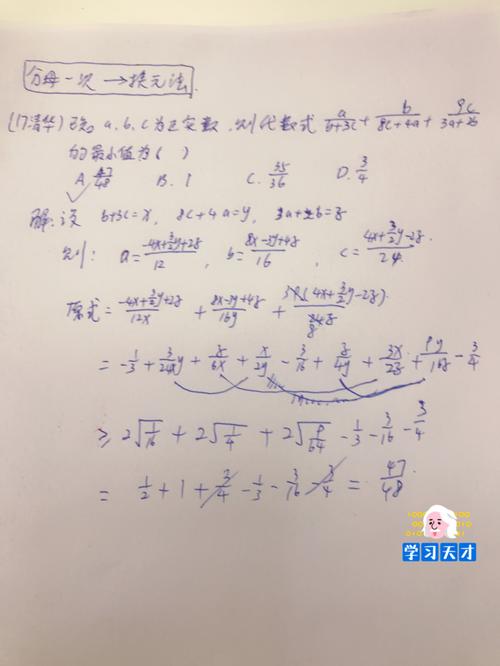 分母一次 → 换元法.
(17清华) 已知 a、b、c为正实数, 则代数式 a/(b+3c) + b/(8c+4a) + 9c/(3a+2b)
的最小值为( )
A. 47/48 B. 1 C. 35/36 D. 3/4
解: 设 b+3c=x, 8c+4a=y, 3a+2b=z
则: a = (-4x+3/2y+2z)/12 , b = (8x-3y+4z)/16 , c = (4x+3/2y-2z)/24
原式 = (-4x+3/2y+2z)/12x + (8x-3y+4z)/16y + (4x+3/2y-2z)/8z
= -1/3 + 3/24x y + z/6x + x/2y - 3/16 + z/4y + 3x/2z + 9y/16z - 3/4
≥ 2√(1/16) + 2√(1/4) + 2√(9/64) - 1/3 - 3/16 - 3/4
= 1/2 + 1 + 3/4 - 1/3 - 3/16 - 3/4 = 47/48.
学习天才